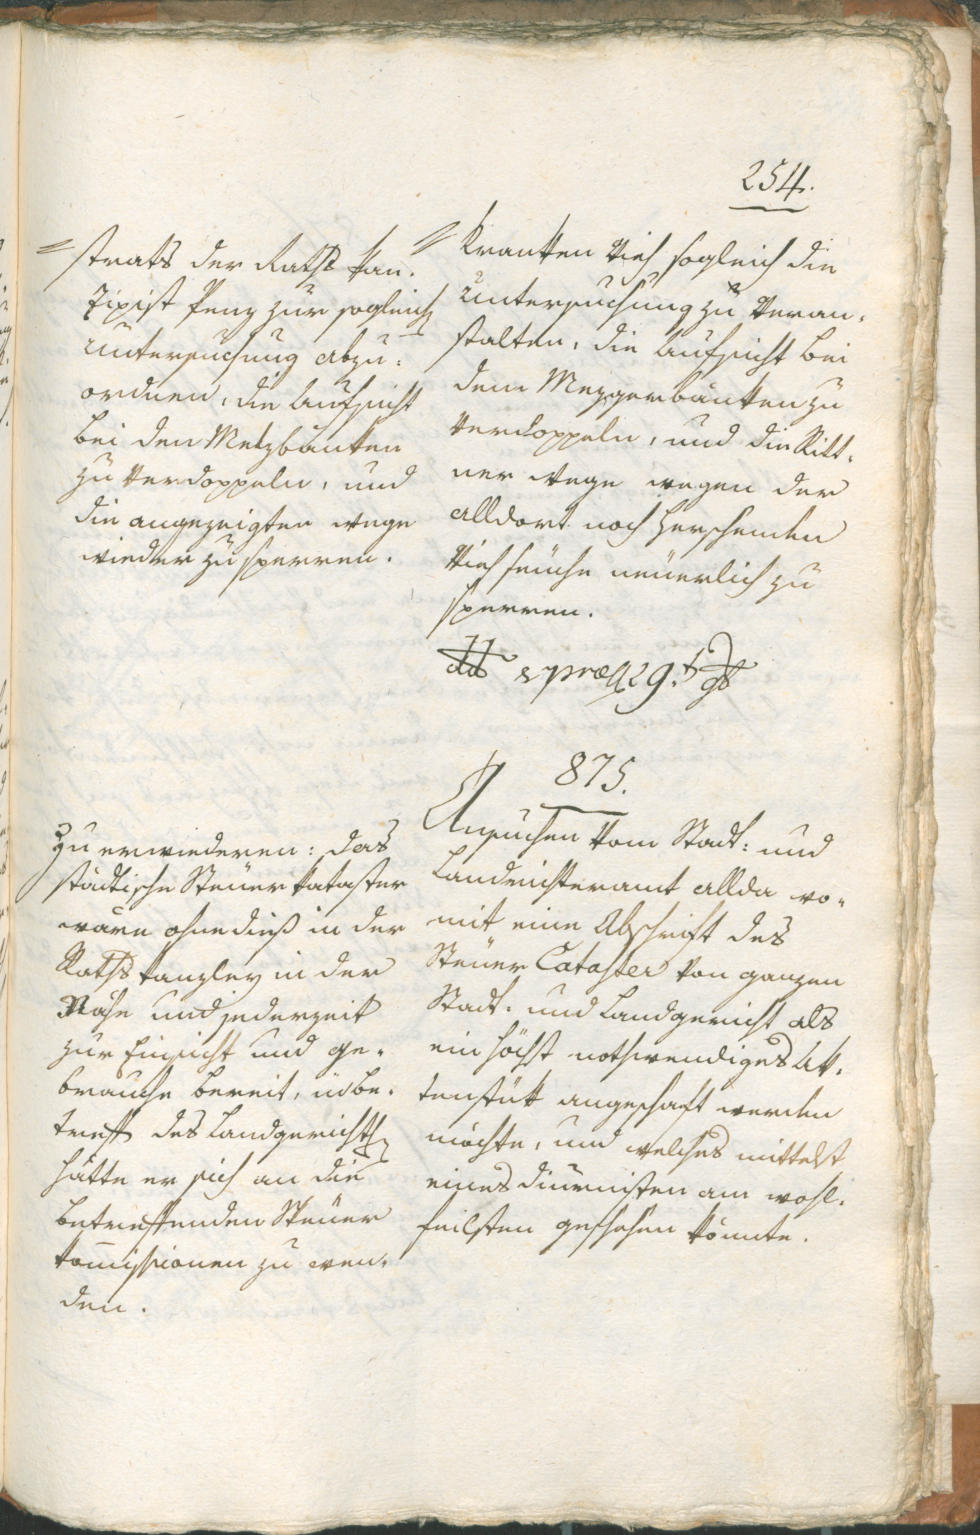 254.
strats der Raths Kan-
zixist Penz zur sogleich
Untersuchung abzu-
ordnen, die Aufsicht
bei den Metzbänken
zu verdoppeln, und
die angezeigten Wege
wieder zu sperren.
kranken Vieh sogleich die
Untersuchung zu veran-
stalten, die Aufsicht bei
dem Mezgerbänken zu
verdoppeln, und die Ritt-
ner Wege wegen der
alldort noch herschenden
Viehseuche neuerlich zu
sperren.
dd &præs 29.t
875.
Zu erwiederen: das
städtische Steuerkataster
wäre ohnedieß in der
Rathskanzley in der
Nähe und jederzeit
zur Einsicht und ge-
brauche bereit, in be-
treff des Landgerichts
hätte er sich an die
betreffenden Steuer
kom̄issionen zu wen-
den.
Ansuchen vom Stadt- und
Landrichteramt allda wo-
mit eine Abschrift des
Steuer Cataster von ganzen
Stadt- und Landgericht als
ein höchst nothwendiges Ak-
tenstük angeschaft werden
möchte, und welches mittelst
eines Diurnisten am wohl-
feilsten geschehen könnte.